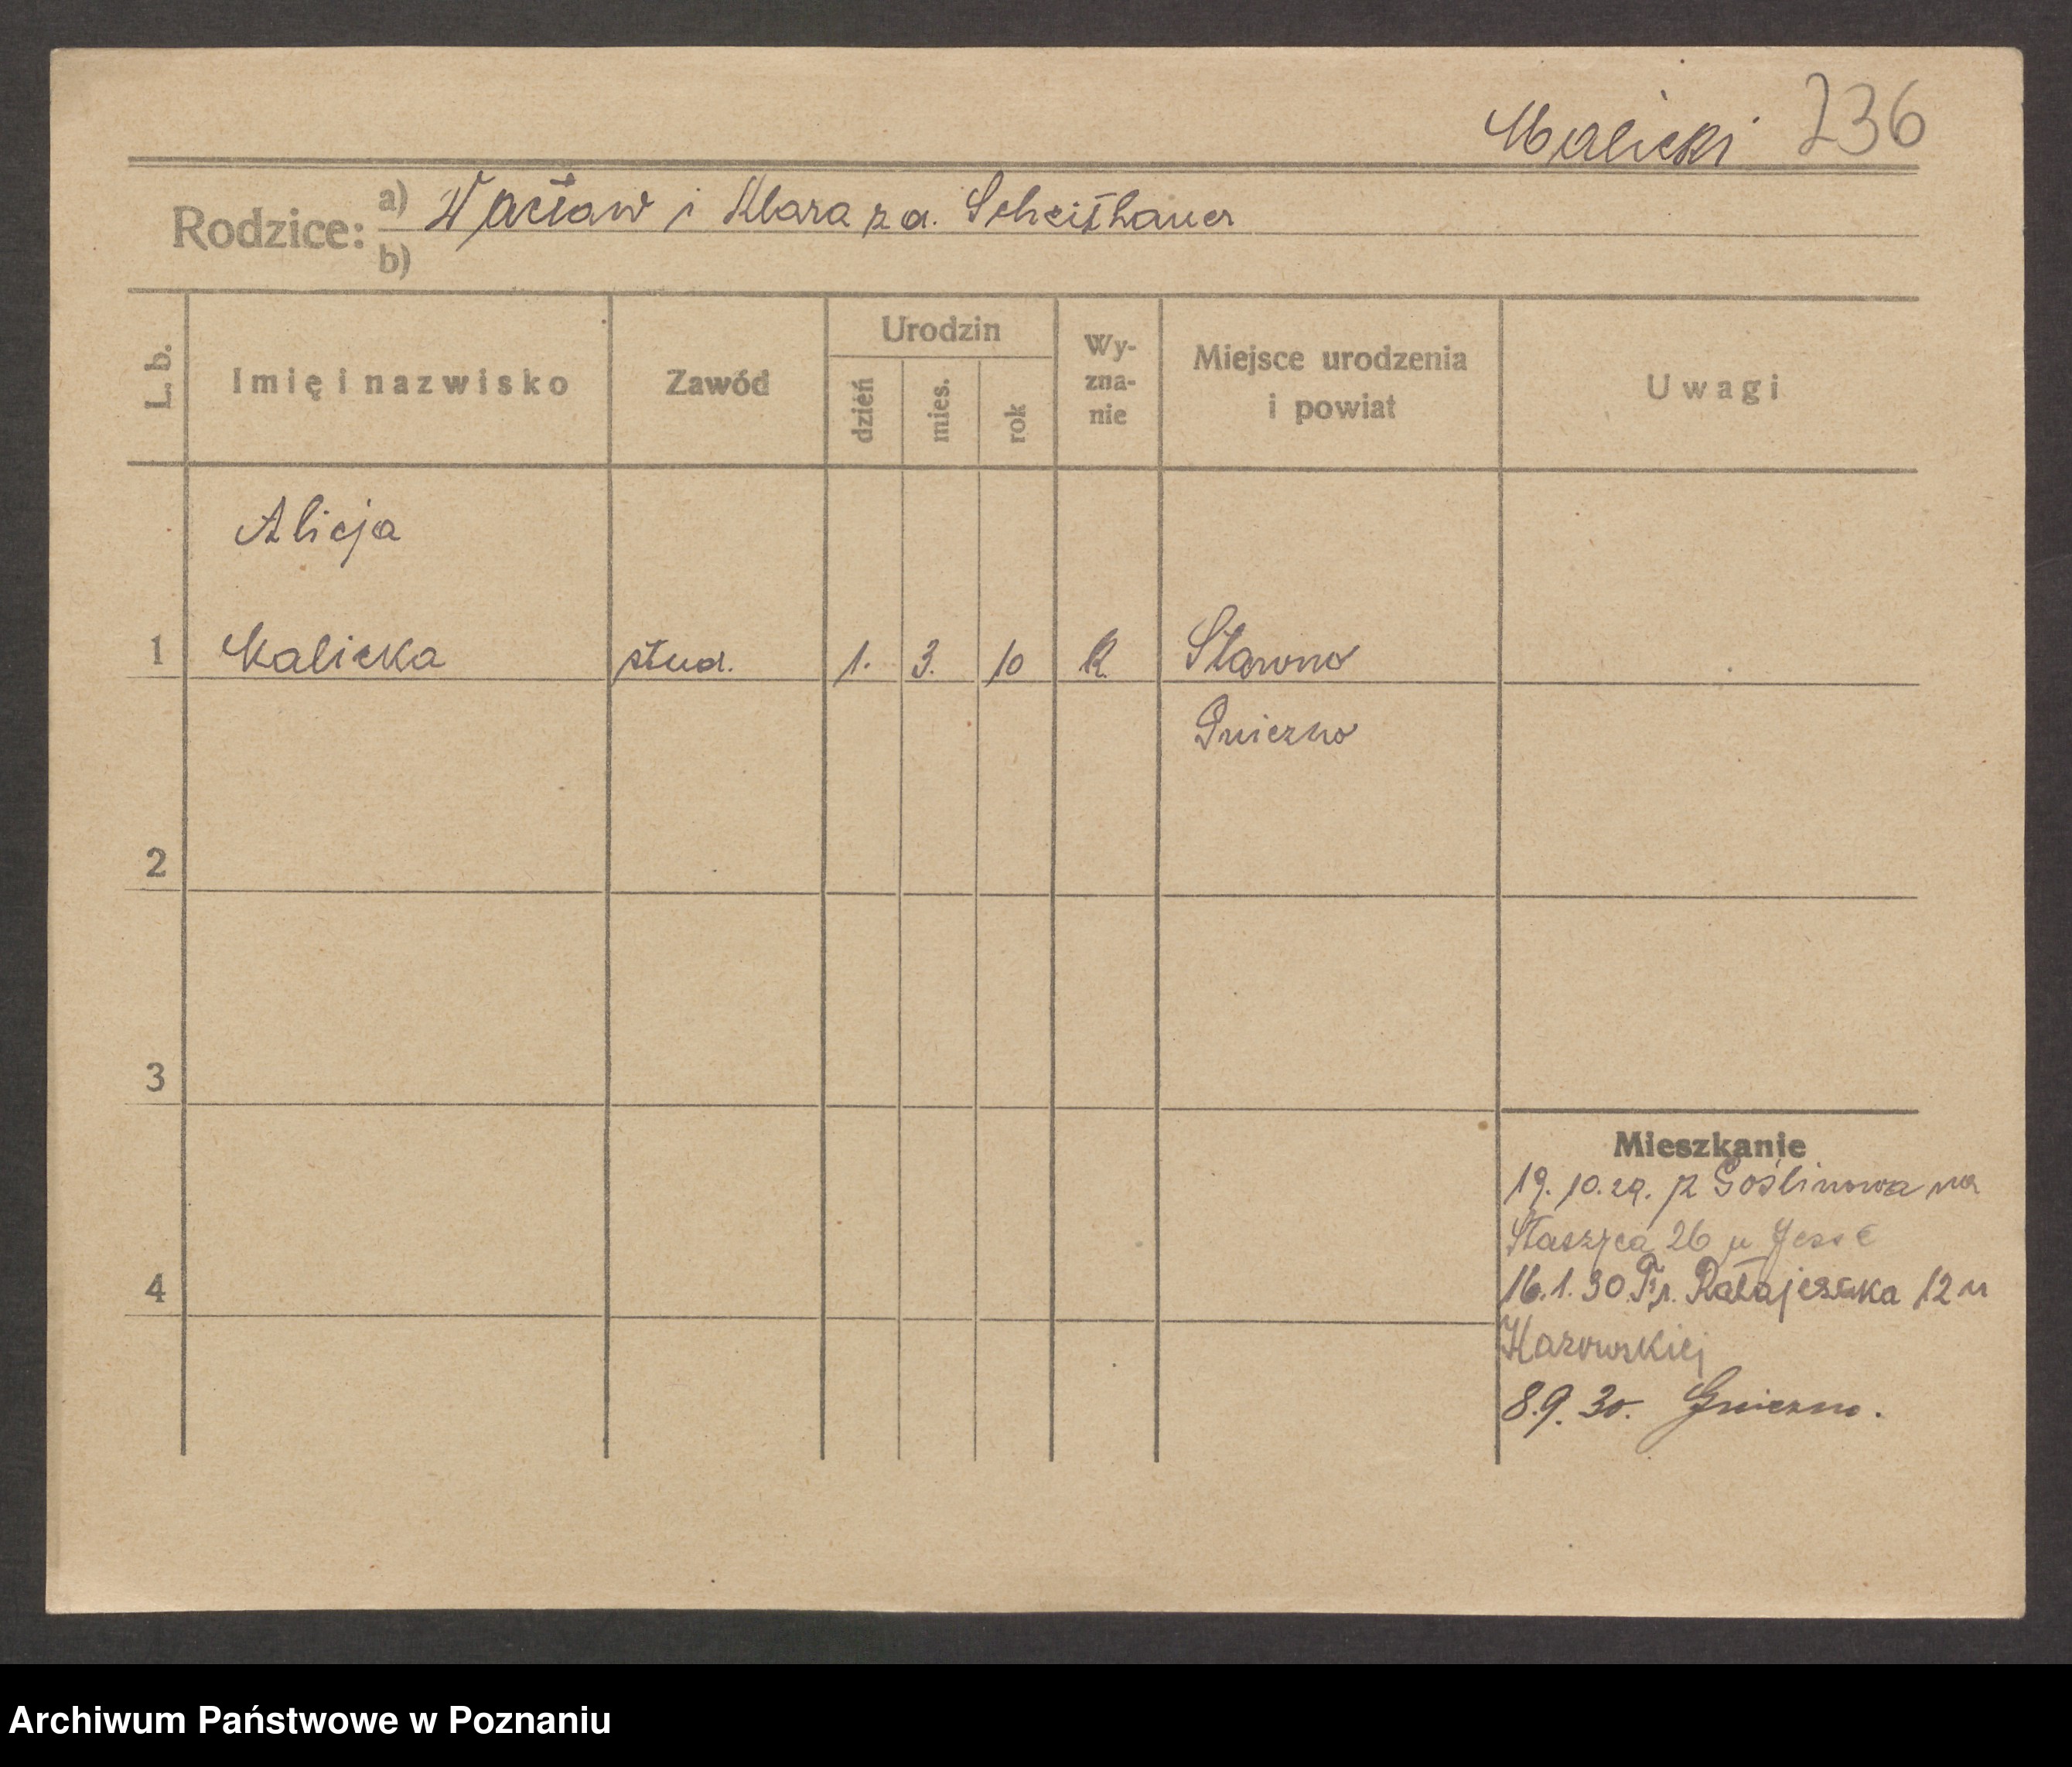 Malicki 236
Rodzice: a) Wacław i Klara z d. Scheithauer
b)
L. b.
Imię i nazwisko
Zawód
Urodzin
dzień
mies.
rok
Wy-
zna-
nie
Miejsce urodzenia
i powiat
Uwagi
Alicja
1 Malicka stud. 1. 3. 10 k. Sławno
Gniezno
2
3
4
Mieszkanie
19.10.29. z Goślinowa na
Staszyca 26 u Jesse
16.1.30. Fr. Ratajczaka 12 u
8.9.30. Gniezno.
Archiwum Państwowe w Poznaniu